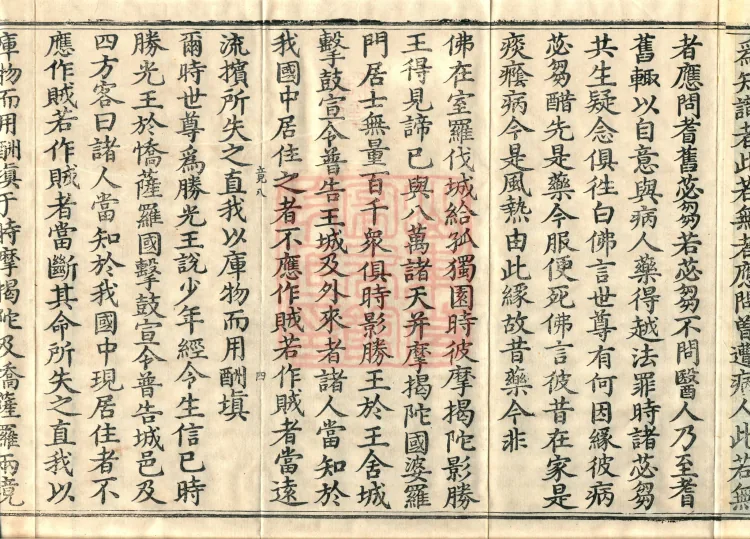 爲知識者此若無者應問曾遭病人此若無
者應問耆舊苾芻若苾芻不問醫人乃至耆
舊輒以自意與病人藥得越法罪時諸苾芻
共生疑念俱往白佛言世尊有何因緣彼病
苾芻醋先是藥今服便死佛言彼昔在家是
痰癊病今是風熱由此緣故昔藥今非
佛在室羅伐城給孤獨園時彼摩揭陀影勝
王得見諦已與八萬諸天并摩揭陀國婆羅
門居士無量百千衆俱時影勝王於王舍城
擊鼓宣令普告王城及外來者諸人當知於
我國中居住之者不應作賊若作賊者當遠
竟八 四
流擯所失之直我以庫物而用酬塡
爾時世尊爲勝光王說少年經令生信已時
勝光王於憍薩羅國擊鼓宣令普告城邑及
四方客曰諸人當知於我國中現居住者不
應作賊若作賊者當斷其命所失之直我以
庫物而用酬塡于時摩揭陀及憍薩羅兩竟